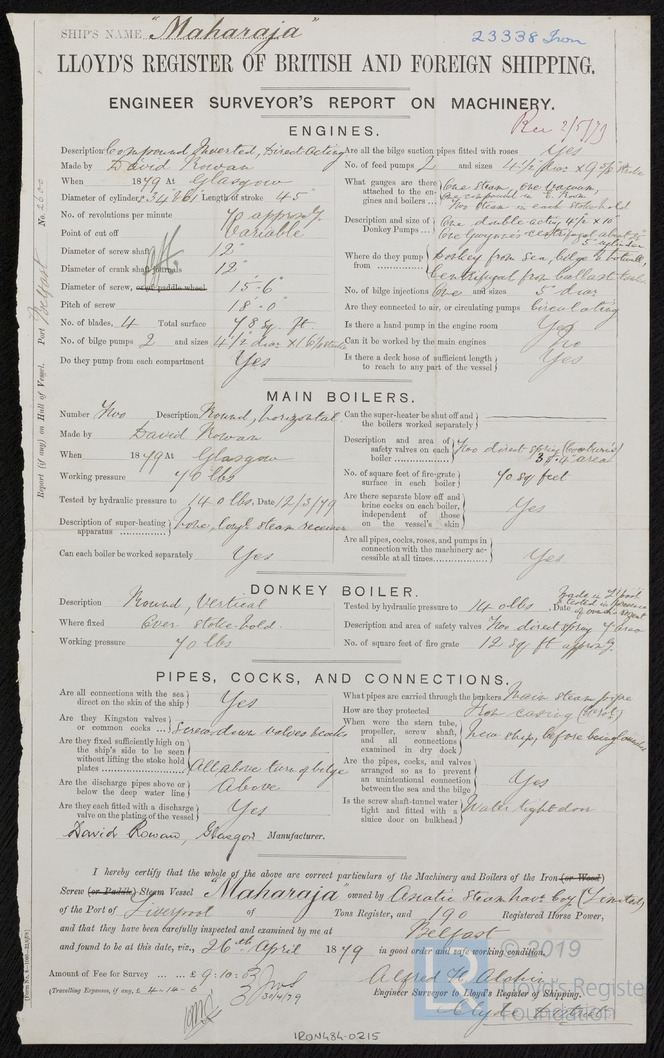 SHIP'S NAME "Maharaja"
23338 Iron
LLOYD'S REGISTER OF BRITISH AND FOREIGN SHIPPING.
ENGINEER SURVEYOR'S REPORT ON MACHINERY.
Rec 2/5/79
Report (if any) on Hull of Vessel. Port Belfast No. 2600
ENGINES.
Description Compound Inverted, Direct Acting
Made by David Rowan
When 1879 At Glasgow
Diameter of cylinders 34" & 61" Length of stroke 45"
No. of revolutions per minute 70 approx
Point of cut off Variable
Diameter of screw shaft 12"
Diameter of crank shaft journals 12"
Diameter of screw, or of paddle wheel 15'-6"
Pitch of screw 18'-0"
No. of blades, 4 Total surface 78 sq. ft.
No. of bilge pumps 2 and sizes 4 1/2 diar. x 16
Do they pump from each compartment Yes
Are all the bilge suction pipes fitted with roses Yes
No. of feed pumps 2 and sizes 4 1/2 diar x 9
What gauges are there attached to the engines and boilers One Steam, one vacuum,
one compound in E. Room
Two Steam in each stokehold
Description and size of Donkey Pumps One double acting 4 1/2 x 10"
One Gwynnes centrifugal about
5" cylinder
Where do they pump from donkey from sea, bilge & hotwell,
Centrifugal from ballast tanks
No. of bilge injections One and sizes 5" diar
Are they connected to air, or circulating pumps Circulating
Is there a hand pump in the engine room Yes
Can it be worked by the main engines No
Is there a deck hose of sufficient length to reach to any part of the vessel Yes
MAIN BOILERS.
Number Two Description Round, horizontal
Made by David Rowan
When 1879 At Glasgow
Working pressure 70 lbs
Tested by hydraulic pressure to 140 lbs. Date 12/3/79
Description of super-heating apparatus none, steam receiver
Can each boiler be worked separately Yes
Can the super-heater be shut off and the boilers worked separately
Description and area of safety valves on each boiler Two direct spring
area
No. of square feet of fire-grate surface in each boiler 70 sq feet
Are there separate blow off and brine cocks on each boiler, independent of those on the vessel's skin Yes
Are all pipes, cocks, roses, and pumps in connection with the machinery accessible at all times Yes
DONKEY BOILER.
Description Round, Vertical
Where fixed Over stoke-hold
Working pressure 70 lbs
Tested by hydraulic pressure to 140 lbs, Date Made in L'pool
tested in presence
of
Description and area of safety valves Two direct spring 7" area
No. of square feet of fire grate 12 sq ft approx
PIPES, COCKS, AND CONNECTIONS.
Are all connections with the sea direct on the skin of the ship Yes
Are they Kingston valves or common cocks Screw down valves & cocks
Are they fixed sufficiently high on the ship's side to be seen without lifting the stoke hold plates All above turn of bilge
Are the discharge pipes above or below the deep water line Above
Are they each fitted with a discharge valve on the plating of the vessel Yes
David Rowan, Glasgow Manufacturer.
What pipes are carried through the bunkers Main steam pipe
How are they protected Iron casing
When were the stern tube, propeller, screw shaft, and all connections examined in dry dock new ship, before being launched
Are the pipes, cocks, and valves arranged so as to prevent an unintentional connection between the sea and the bilge Yes
Is the screw shaft-tunnel water tight and fitted with a sluice door on bulkhead Water tight door
I hereby certify that the whole of the above are correct particulars of the Machinery and Boilers of the Iron (or Wood)
Screw (or Paddle) Steam Vessel "Maharaja" owned by Asiatic Steam Nav. Coy (Limited)
of the Port of Liverpool of Tons Register, and 190 Registered Horse Power,
and that they have been carefully inspected and examined by me at Belfast
and found to be at this date, viz., 26th April 1879 in good order and safe working condition.
Amount of Fee for Survey ... £9:10:0
(Travelling Expenses, if any, £ 4-14-6
30/4/79
Engineer Surveyor to Lloyd's Register of Shipping.
Clyde District
IRON484-0215
© 2019
Lloyd's Register
Foundation